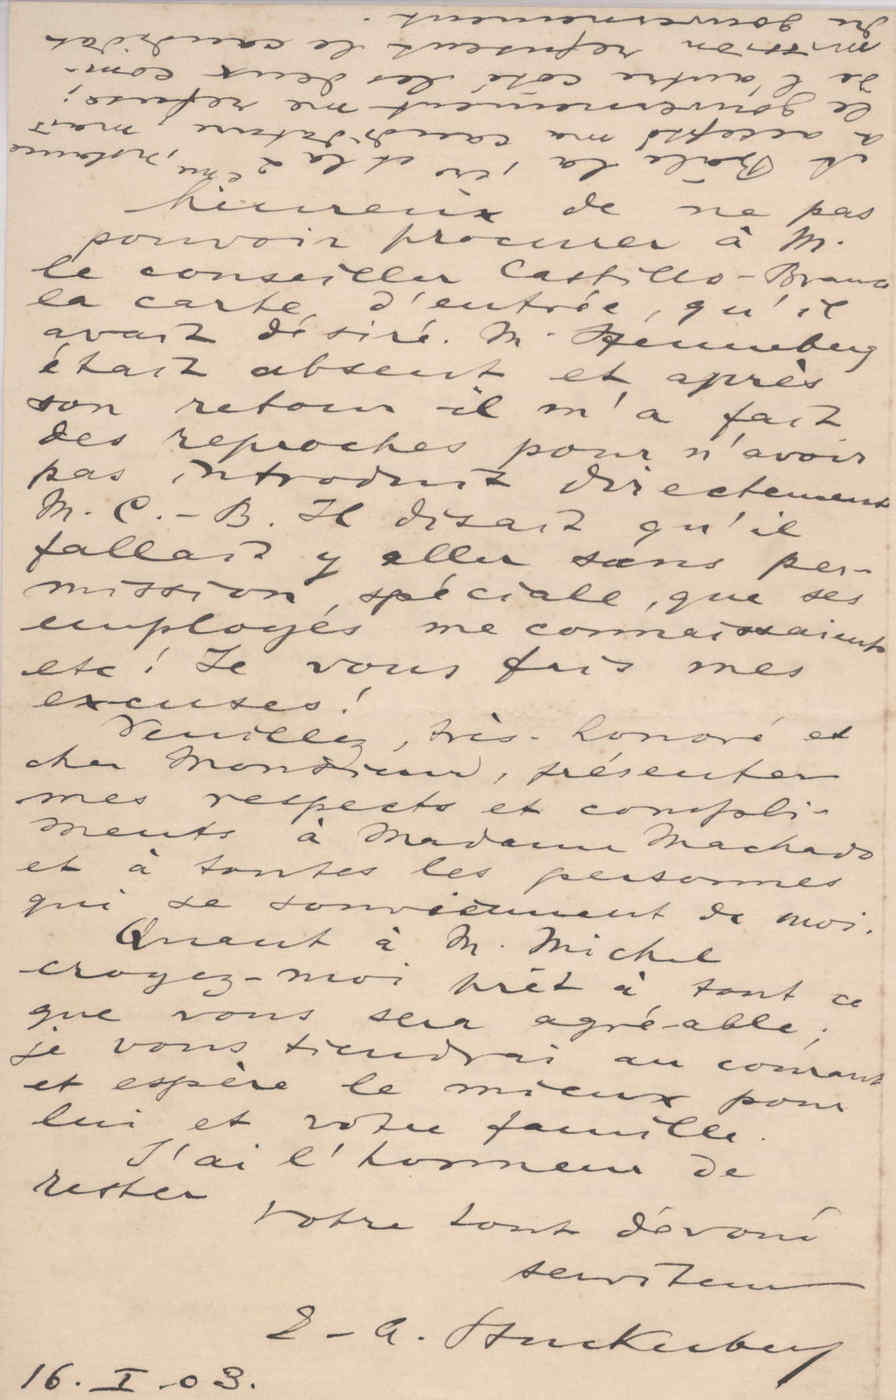 heureux de ne pas
pouvoir procurer à M.
le conseiller Castillo-Branco
la carte d'entrée, qu'il
avait désiré. M. Henneberg
était absent et après
son retour il m'a fait
des reproches pour n'avoir
pas introduit directement
M. C.-B. Il disait qu'il
fallait y aller sans per-
mission spéciale, que ses
employés me connaissaient
etc! Je vous fais mes
excuses!
Veuillez, très-honoré et
cher Monsieur, présenter
mes respects et compli-
ments à Madame Machado
et à toutes les personnes
qui se souviennent de moi.
Quant à M. Michel
croyez-moi prêt à tout ce
que vous sera agré-able;
je vous tiendrai au courant
et espère le mieux pour
lui et votre famille.
J'ai l'honneur de
rester
Votre tout dévoué
serviteur
E-A.
16. I. 03.
et Bâle la 1ère et la 2ème instance
a accepté ma candidature, mais
le gouvernement me refuse;
de l'autre côté les deux com-
mission refusent le candidat
du gouvernement.